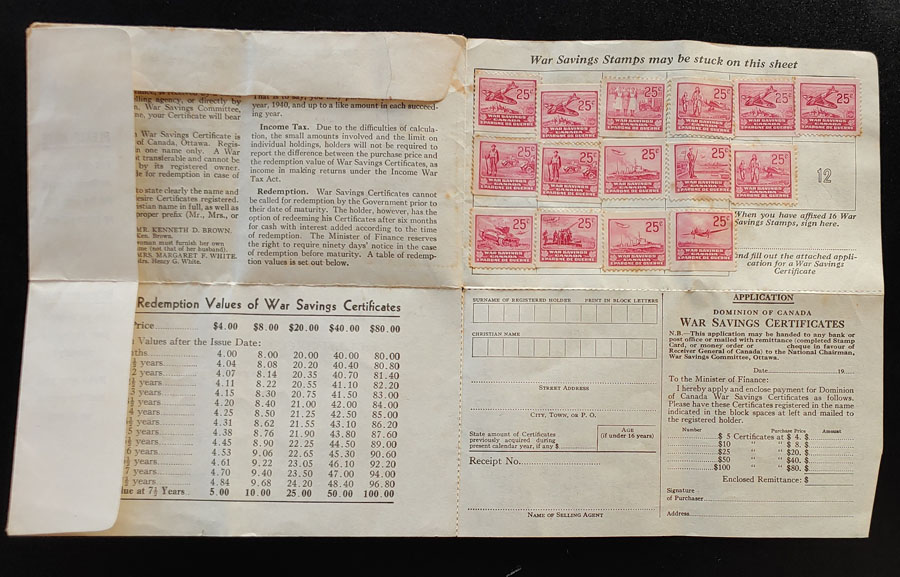 ling agency, or directly by
War Savings Committee,
ne, your Certificate will bear
War Savings Certificate is
of Canada, Ottawa. Regis-
one name only. A War
transferable and cannot be
by its registered owner.
le for redemption in case of
to state clearly the name and
esire Certificates registered.
stian name in full, as well as
proper prefix (Mr., Mrs., or
MR. KENNETH D. BROWN.
Ken. Brown.
woman must furnish her own
me (not that of her husband).
MRS. MARGARET F. WHITE.
Mrs. Henry G. White.
That is to say, you may
year, 1940, and up to a like amount in each succeed-
ing year.
Income Tax. Due to the difficulties of calcula-
tion, the small amounts involved and the limit on
individual holdings, holders will not be required to
report the difference between the purchase price and
the redemption value of War Savings Certificates, as
income in making returns under the Income War
Tax Act.
Redemption. War Savings Certificates cannot
be called for redemption by the Government prior to
their date of maturity. The holder, however, has the
option of redeeming his Certificates after six months
for cash with interest added according to the time
of redemption. The Minister of Finance reserves
the right to require ninety days' notice in the case
of redemption before maturity. A table of redemp-
tion values is set out below.
War Savings Stamps may be stuck on this sheet
25¢ 25¢ 25¢ 25¢ 25¢ 25¢
WAR SAVINGS CANADA EPARGNE DE GUERRE
25¢ 25¢ 25¢ 25¢ 25¢
WAR SAVINGS CANADA EPARGNE DE GUERRE
12
25¢ 25¢ 25¢ 25¢
WAR SAVINGS CANADA EPARGNE DE GUERRE
When you have affixed 16 War
Savings Stamps, sign here.
nd fill out the attached appli-
cation for a War Savings
Certificate
Redemption Values of War Savings Certificates
Price $4.00 $8.00 $20.00 $40.00 $80.00
Values after the Issue Date:
nths 4.00 8.00 20.00 40.00 80.00
years 4.04 8.08 20.20 40.40 80.80
years 4.07 8.14 20.35 40.70 81.40
years 4.11 8.22 20.55 41.10 82.20
years 4.15 8.30 20.75 41.50 83.00
years 4.20 8.40 21.00 42.00 84.00
years 4.25 8.50 21.25 42.50 85.00
years 4.31 8.62 21.55 43.10 86.20
years 4.38 8.76 21.90 43.80 87.60
years 4.45 8.90 22.25 44.50 89.00
years 4.53 9.06 22.65 45.30 90.60
years 4.61 9.22 23.05 46.10 92.20
years 4.70 9.40 23.50 47.00 94.00
years 4.84 9.68 24.20 48.40 96.80
ue at 7½ Years 5.00 10.00 25.00 50.00 100.00
SURNAME OF REGISTERED HOLDER PRINT IN BLOCK LETTERS
CHRISTIAN NAME
STREET ADDRESS
CITY, TOWN, or P. O.
State amount of Certificates
previously acquired during
present calendar year, if any $
AGE
(if under 16 years)
Receipt No.
NAME OF SELLING AGENT
APPLICATION
DOMINION OF CANADA
WAR SAVINGS CERTIFICATES
N.B.—This application may be handed to any bank or
post office or mailed with remittance (completed Stamp
Card, or money order or cheque in favour of
Receiver General of Canada) to the National Chairman,
War Savings Committee, Ottawa.
Date 19
To the Minister of Finance:
I hereby apply and enclose payment for Dominion
of Canada War Savings Certificates as follows.
Please have these Certificates registered in the name
indicated in the block spaces at left and mailed to
the registered holder.
Number Purchase Price Amount
$ 5 Certificates at $ 4. $
$10 " " $ 8. $
$25 " " $20. $
$50 " " $40. $
$100 " " $80. $
Enclosed Remittance: $
Signature
of Purchaser
Address